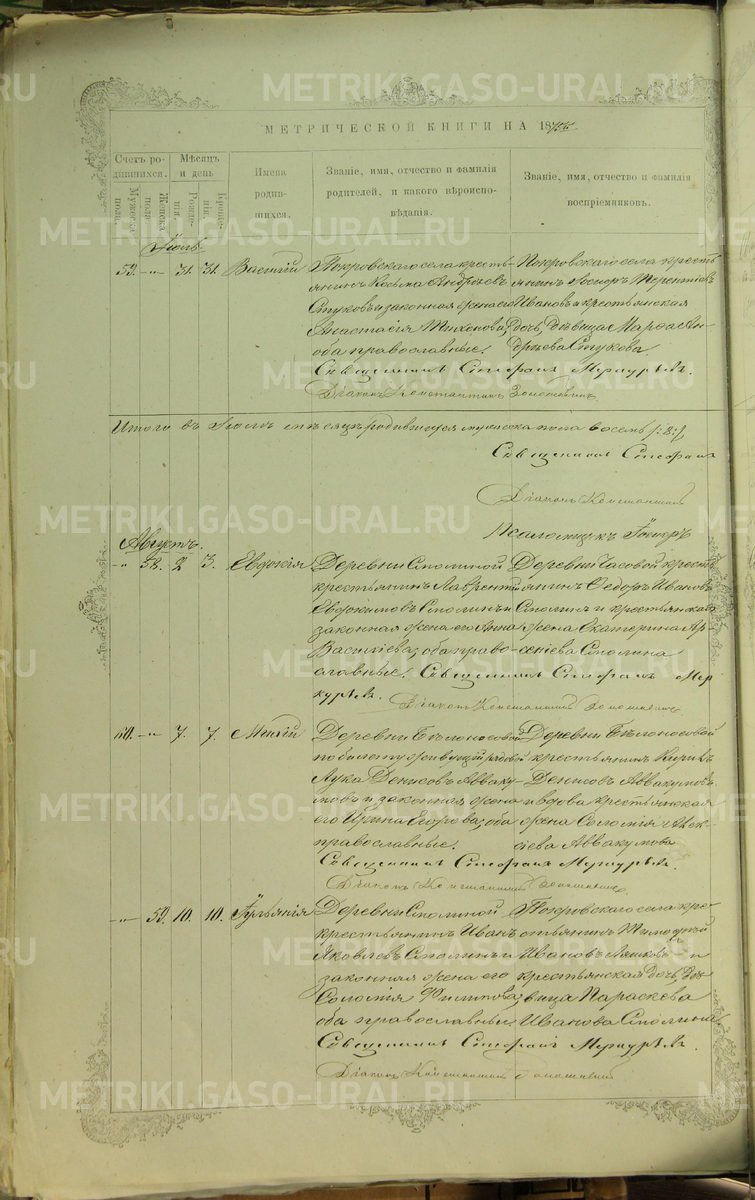 METRIKI.GASO-URAL.RU
МЕТРИЧЕСКОЙ КНИГИ НА 187
Счетъ ро-
дившихся.
Мужеска
пола.
Женска
пола.
Мѣсяцъ
и день
Рожде-
нія.
Креще-
нія.
Имена
родив-
шихся.
Званіе, имя, отчество и фамилія
родителей, и какого вѣроиспо-
вѣданія.
Званіе, имя, отчество и фамилія
воспріемниковъ.
Іюль
59. -"- 31. 31. Василій
Покровскаго села кресть-
янинъ Косьма Андреевъ
Стуковъ и законная жена его
Анастасія Тихонова,
оба православные.
Покровскаго села кресть
янинъ Терентіевъ
Ивановъ и крестьянская
дочь, дѣвица Марѳа Ан-
дреева Стукова.
Священникъ Стефанъ Меркурьевъ.
Діаконъ Константинъ
Итого въ Іюлѣ мѣсяцѣ родившихся мужеска пола восемь /:8:/
Священникъ Стефанъ
Діаконъ Константинъ
Псаломщикъ
Августъ.
-"- 58. 2. 3. Евдокія
Деревни Столиной
крестьянинъ Лаврентій
Евдокимовъ Столинъ и
законная жена его Анна
Васильева, оба право-
славные.
Деревни Часовой кресть
янинъ Ѳедоръ Ивановъ
и крестьянская
жена Екатерина Ар-
сеніева Столина
Священникъ Стефанъ Мер
курьевъ.
Діаконъ Константинъ
60. -"- 7. 7.
Деревни Бѣлоносовой
по билету живущій рядовой
Лука Денисовъ Авваку-
мовъ и законная жена
его Ирина Егорова, оба
православные.
Деревни Бѣлоносовой
крестьянинъ
Денисовъ Аввакумовъ
и вдова крестьянская
жена Соломія Алек-
сіева Аввакумова
Священникъ Стефанъ Меркурьевъ.
Діаконъ Константинъ
-"- 59. 10. 10. Іуліанія
Деревни Столиной
крестьянинъ Иванъ
Яковлевъ Столинъ и
законная жена его
Соломія Филипова,
оба православные
Покровскаго села кре-
стьянинъ Тимоѳей
Ивановъ и
крестьянская дочь, дѣ-
вица Параскева
Иванова Столина
Священникъ Стефанъ Меркурьевъ.
Діаконъ Константинъ